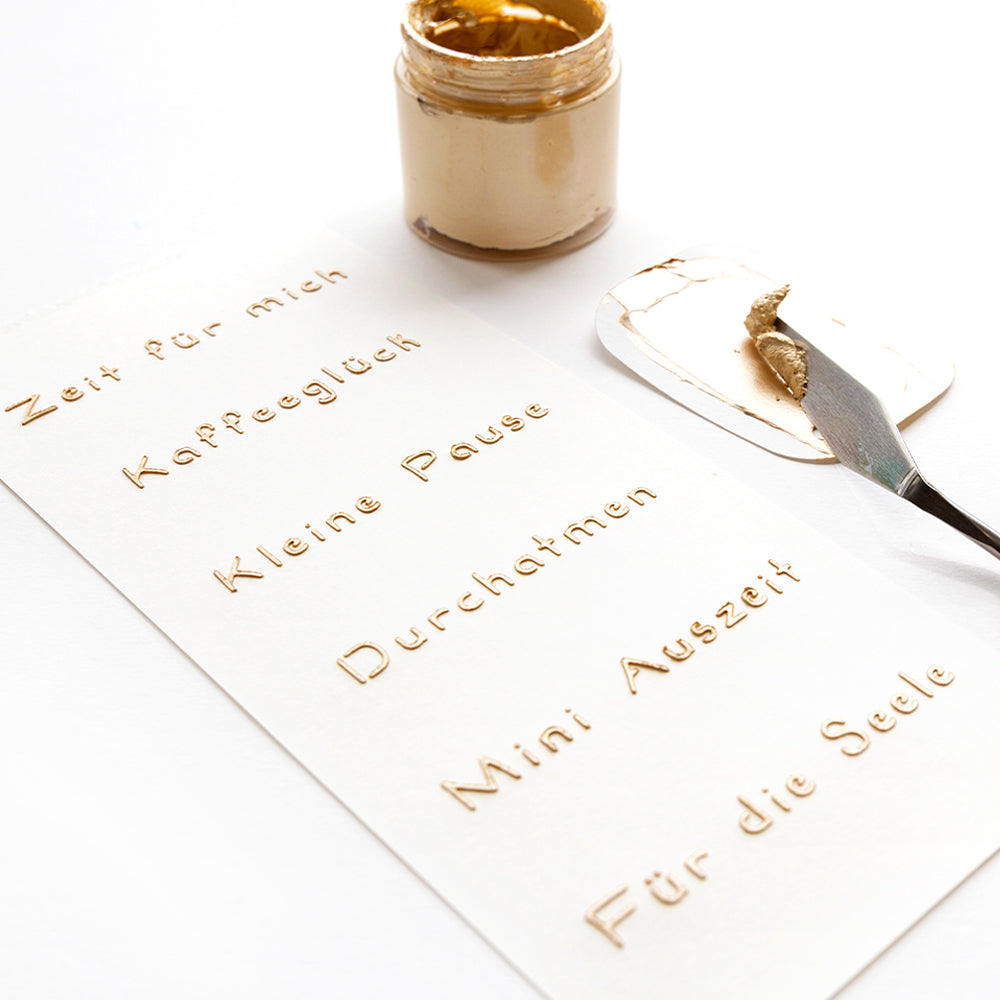 Zeit für mich
Kaffeeglück
Kleine Pause
Durchatmen
Mini Auszeit
Für die Seele